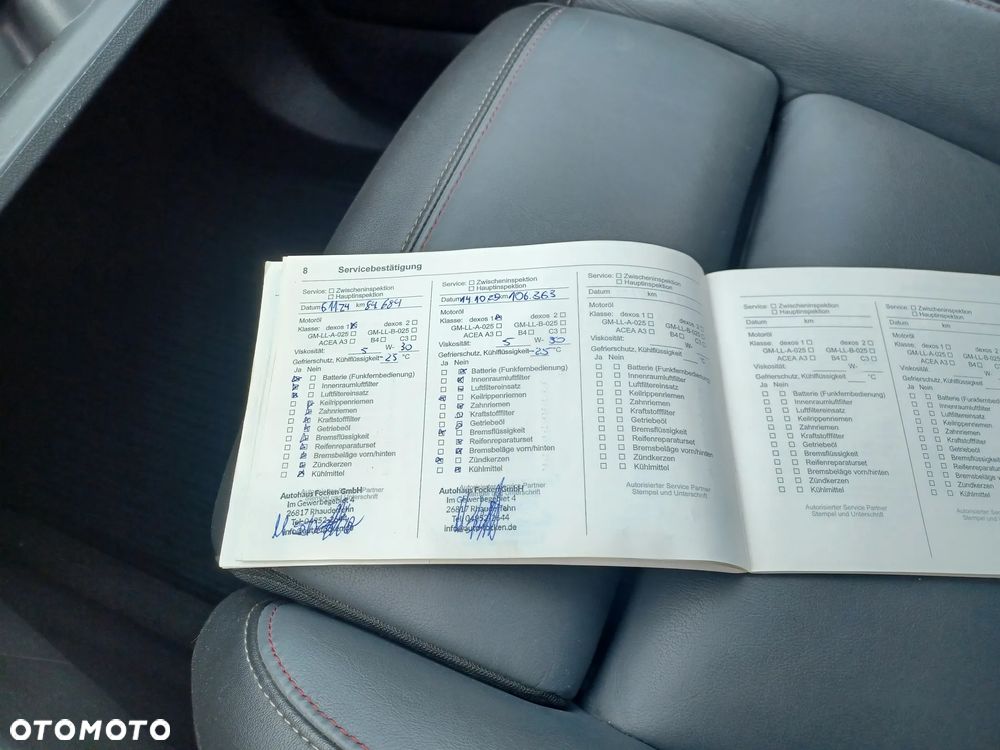 8 Servicebestätigung
Service: ☐ Zwischeninspektion
☐ Hauptinspektion
Datum 6.11.24 km 84.684
Motoröl
Klasse: dexos 1 ☒ dexos 2 ☐
GM-LL-A-025 ☐ GM-LL-B-025 ☐
ACEA A3 ☐ B4 ☐ C3 ☐
Viskosität: 5 W- 30
Gefrierschutz, Kühlflüssigkeit -25 °C
Ja Nein
Batterie (Funkfernbedienung)
Innenraumluftfilter
Luftfiltereinsatz
Keilrippenriemen
Zahnriemen
Kraftstofffilter
Getriebeöl
Bremsflüssigkeit
Reifenreparaturset
Bremsbeläge vorn/hinten
Zündkerzen
Kühlmittel
Autohaus Focken GmbH
Im Gewerbegebiet 4
26817 Rhauderfehn
Service: ☐ Zwischeninspektion
☐ Hauptinspektion
Datum 14.10 km 106.363
Motoröl
Klasse: dexos 1 ☒ dexos 2 ☐
GM-LL-A-025 ☐ GM-LL-B-025 ☐
ACEA A3 ☐ B4 ☐ C3 ☐
Viskosität: 5 W- 30
Gefrierschutz, Kühlflüssigkeit -25 °C
Ja Nein
Batterie (Funkfernbedienung)
Innenraumluftfilter
Luftfiltereinsatz
Keilrippenriemen
Zahnriemen
Kraftstofffilter
Getriebeöl
Bremsflüssigkeit
Reifenreparaturset
Bremsbeläge vorn/hinten
Zündkerzen
Kühlmittel
Autohaus Focken GmbH
Im Gewerbegebiet 4
26817 Rhauderfehn
Service: ☐ Zwischeninspektion
☐ Hauptinspektion
Datum km
Motoröl
Klasse: dexos 1 ☐ dexos 2
GM-LL-A-025 ☐ GM-LL-B-025
ACEA A3 ☐ B4 ☐ C3
Viskosität: W-
Gefrierschutz, Kühlflüssigkeit
Ja Nein
Batterie (Funkfernbedienung)
Innenraumluftfilter
Luftfiltereinsatz
Keilrippenriemen
Zahnriemen
Kraftstofffilter
Getriebeöl
Bremsflüssigkeit
Reifenreparaturset
Bremsbeläge vorn/hinten
Zündkerzen
Kühlmittel
Autorisierter Service Partner
Stempel und Unterschrift
Service: ☐ Zwischeninspektion
☐ Hauptinspektion
Datum km
Motoröl
Klasse: dexos 1 ☐ dexos 2 ☐
GM-LL-A-025 ☐ GM-LL-B-025 ☐
ACEA A3 ☐ B4 ☐ C3 ☐
Viskosität: W-
Gefrierschutz, Kühlflüssigkeit °C
Ja Nein
Batterie (Funkfernbedienung)
Innenraumluftfilter
Luftfiltereinsatz
Keilrippenriemen
Zahnriemen
Kraftstofffilter
Getriebeöl
Bremsflüssigkeit
Reifenreparaturset
Bremsbeläge vorn/hinten
Zündkerzen
Kühlmittel
Autorisierter Service Partner
Stempel und Unterschrift
Service: ☐ Zwischeninspektion
☐ Hauptinspektion
Datum km
Motoröl
Klasse: dexos 1 ☐
GM-LL-A-025 ☐
ACEA A3
Viskosität:
Gefrierschutz, Kühlflüssigkeit
Ja Nein
Innenraumluftfilter
Luftfiltereinsatz
Keilrippenriemen
Zahnriemen
Kraftstofffilter
Getriebeöl
Bremsflüssigkeit
Zündkerzen
Kühlmittel
OTOMOTO